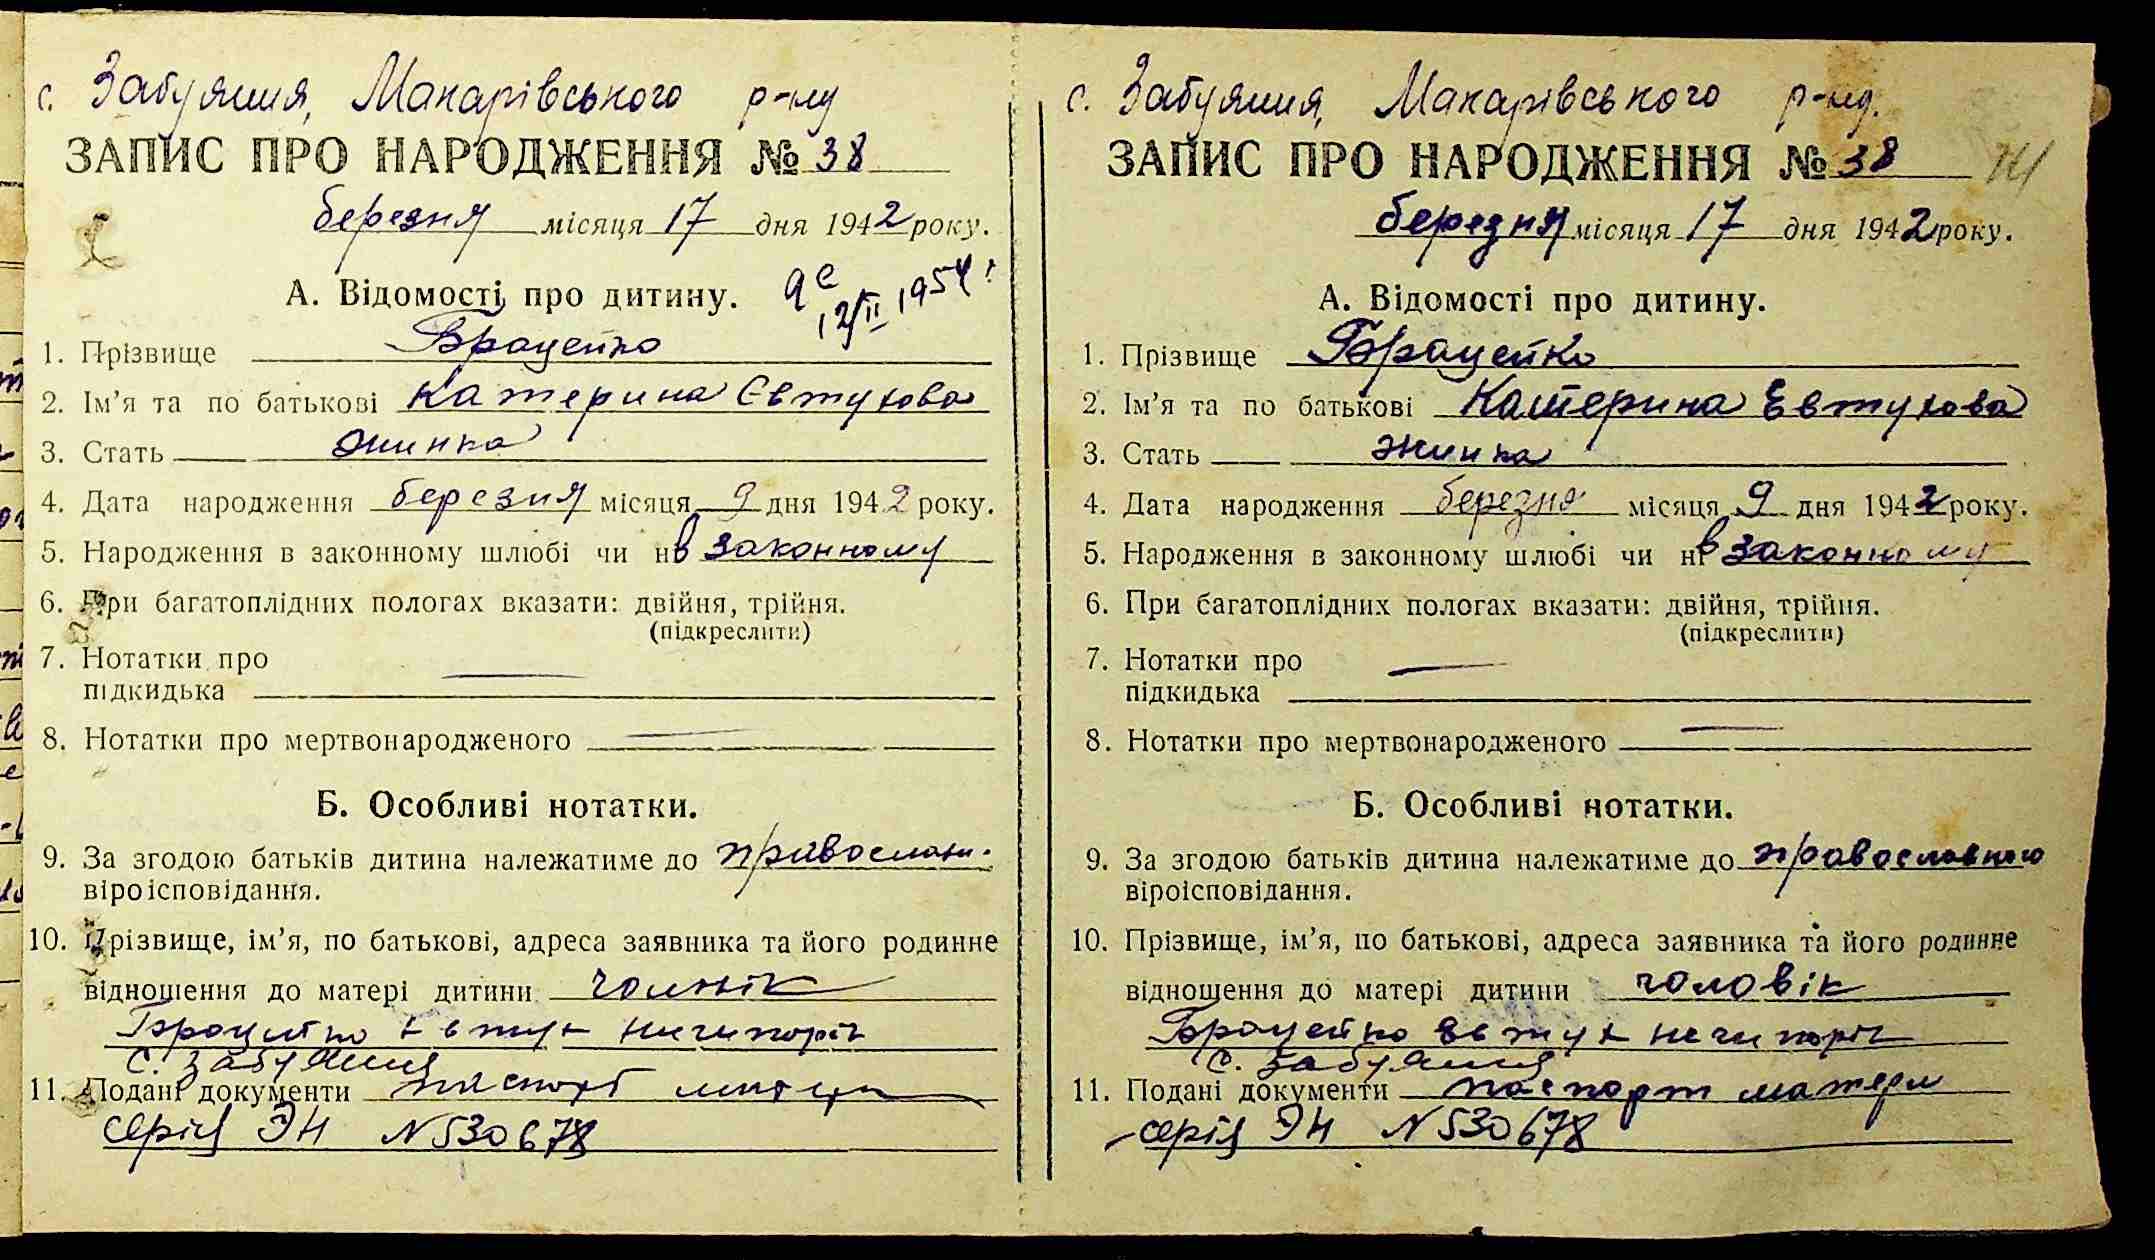 с. Забуяння, Макарівського р-ну
ЗАПИС ПРО НАРОДЖЕННЯ № 38
березня місяця 17 дня 1942 року.
А. Відомості про дитину.
12/II 1954
1. Прізвище Броценко
2. Ім'я та по батькові Катерина Євтухова
3. Стать жинка
4. Дата народження березня місяця 9 дня 1942 року.
5. Народження в законному шлюбі чи ні в законному
6. При багатоплідних пологах вказати: двійня, трійня.
(підкреслити)
7. Нотатки про —
підкидька
8. Нотатки про мертвонародженого —
Б. Особливі нотатки.
9. За згодою батьків дитина належатиме до православн.
віроісповідання.
10. Прізвище, ім'я, по батькові, адреса заявника та його родинне
відношення до матері дитини
Броценко Евтух Ничипоріч
с. Забуяння
11. Подані документи паспорт
серія ЭН N 530678
с. Забуяння, Макарівського р-ну.
ЗАПИС ПРО НАРОДЖЕННЯ № 38
березня місяця 17 дня 1942 року.
А. Відомості про дитину.
1. Прізвище Броценко
2. Ім'я та по батькові Катерина Евтухова
3. Стать жинка
4. Дата народження березня місяця 9 дня 1942 року.
5. Народження в законному шлюбі чи ні в законному
6. При багатоплідних пологах вказати: двійня, трійня.
(підкреслити)
7. Нотатки про —
підкидька
8. Нотатки про мертвонародженого —
Б. Особливі нотатки.
9. За згодою батьків дитина належатиме до православного
віроісповідання.
10. Прізвище, ім'я, по батькові, адреса заявника та його родинне
відношення до матері дитини чоловік
Броценко Евтух Ничипоріч
с. Забуяння
11. Подані документи паспорт матери
серія ЭН N 530678